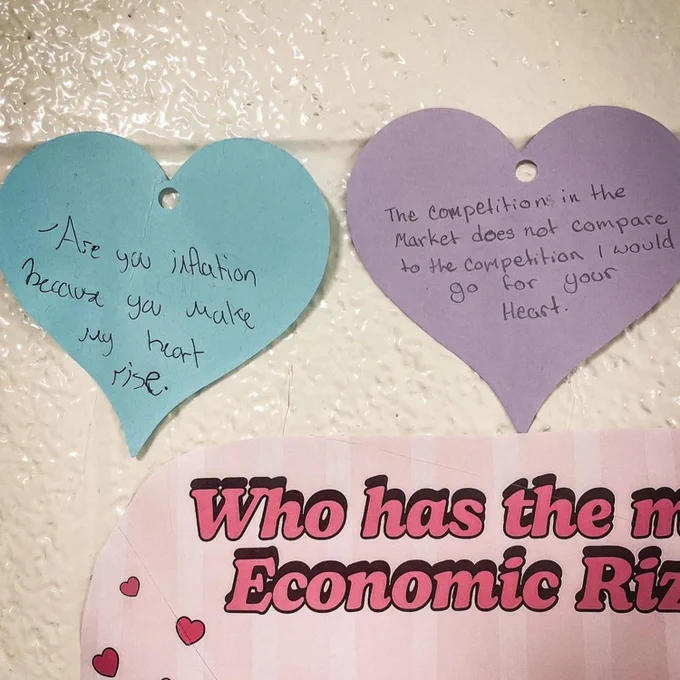 Are you inflation
because you make
my heart
rise.
The Competitions in the
Market does not compare
to the Competition I would
go for your
Heart.
Who has the m
Economic Riz